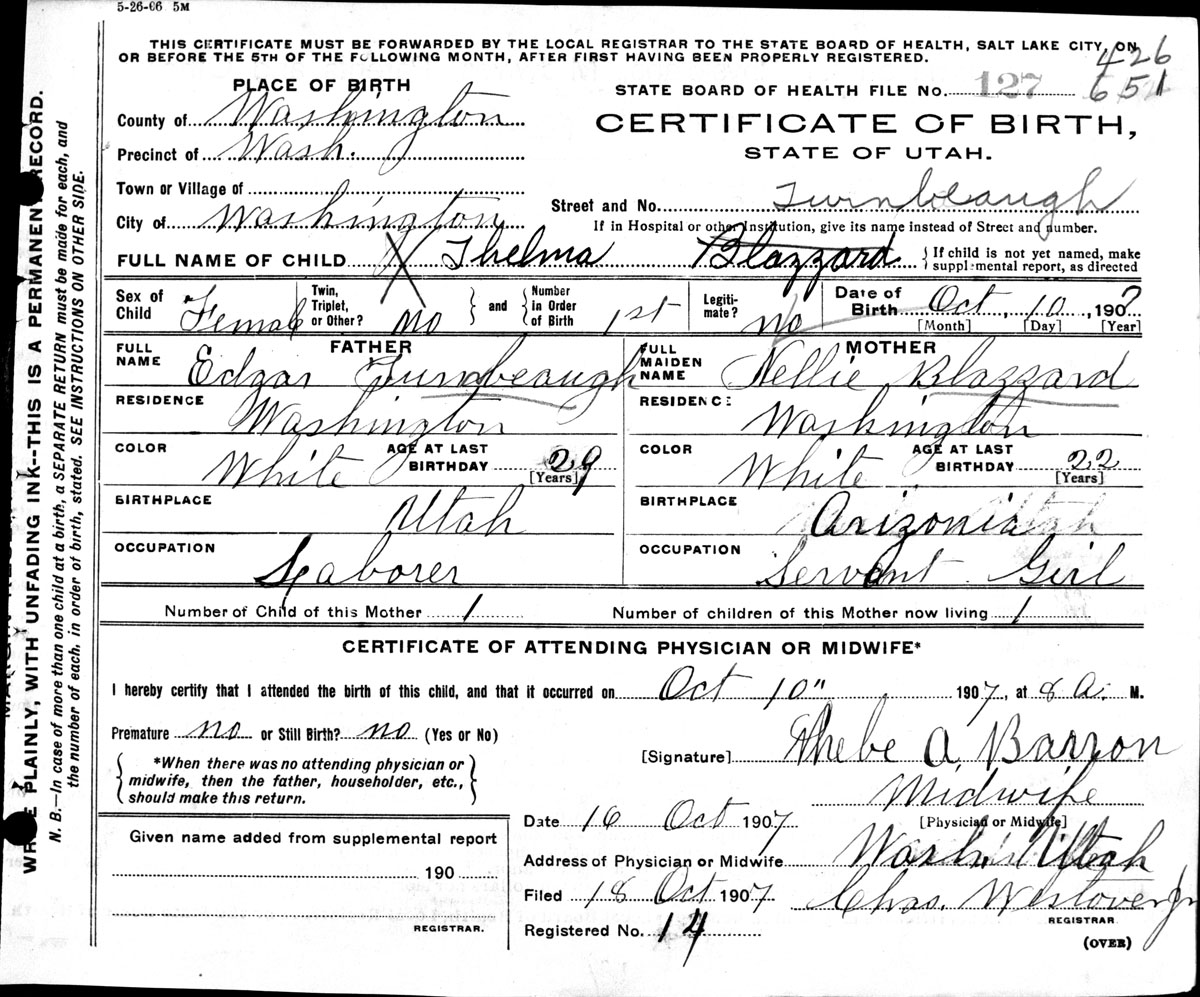 5-26-06 5M
THIS CERTIFICATE MUST BE FORWARDED BY THE LOCAL REGISTRAR TO THE STATE BOARD OF HEALTH, SALT LAKE CITY, ON
OR BEFORE THE 5TH OF THE FOLLOWING MONTH, AFTER FIRST HAVING BEEN PROPERLY REGISTERED.
426
651
PLACE OF BIRTH
County of Washington
Precinct of Wash.
Town or Village of
City of Washington
STATE BOARD OF HEALTH FILE No. 127
CERTIFICATE OF BIRTH,
STATE OF UTAH.
Street and No. Turnbeaugh
If in Hospital or other Institution, give its name instead of Street and number.
FULL NAME OF CHILD X Thelma Blazzard
If child is not yet named, make
supplemental report, as directed
Sex of Child Female
Twin, Triplet, or Other? No
and Number in Order of Birth 1st
Legiti-mate? No
Date of Birth Oct, 10, 1907
[Month] [Day] [Year]
FATHER
FULL NAME Edgar Turnbeaugh
RESIDENCE Washington
COLOR White AGE AT LAST BIRTHDAY 29
[Years]
BIRTHPLACE Utah
OCCUPATION Laborer
MOTHER
FULL MAIDEN NAME Nellie Blazzard
RESIDENCE Washington
COLOR White AGE AT LAST BIRTHDAY 22
[Years]
BIRTHPLACE Arizonia
OCCUPATION Servant Girl
Number of Child of this Mother 1 Number of children of this Mother now living 1
CERTIFICATE OF ATTENDING PHYSICIAN OR MIDWIFE*
I hereby certify that I attended the birth of this child, and that it occurred on Oct 10" 1907, at 8 A. M.
Premature no or Still Birth? no (Yes or No)
*When there was no attending physician or
midwife, then the father, householder, etc.,
should make this return.
[Signature] Phebe A. Barron
Midwife
[Physician or Midwife]
Date 16 Oct 1907
Address of Physician or Midwife Wash. Utah
Filed 18 Oct 1907 Chas. Westover Jr
REGISTRAR
Registered No. 14
(OVER)
Given name added from supplemental report
190
REGISTRAR.
WRITE PLAINLY, WITH UNFADING INK--THIS IS A PERMANENT RECORD.
N. B.—In case of more than one child at a birth, a SEPARATE RETURN must be made for each, and
the number of each. in order of birth, stated. SEE INSTRUCTIONS ON OTHER SIDE.